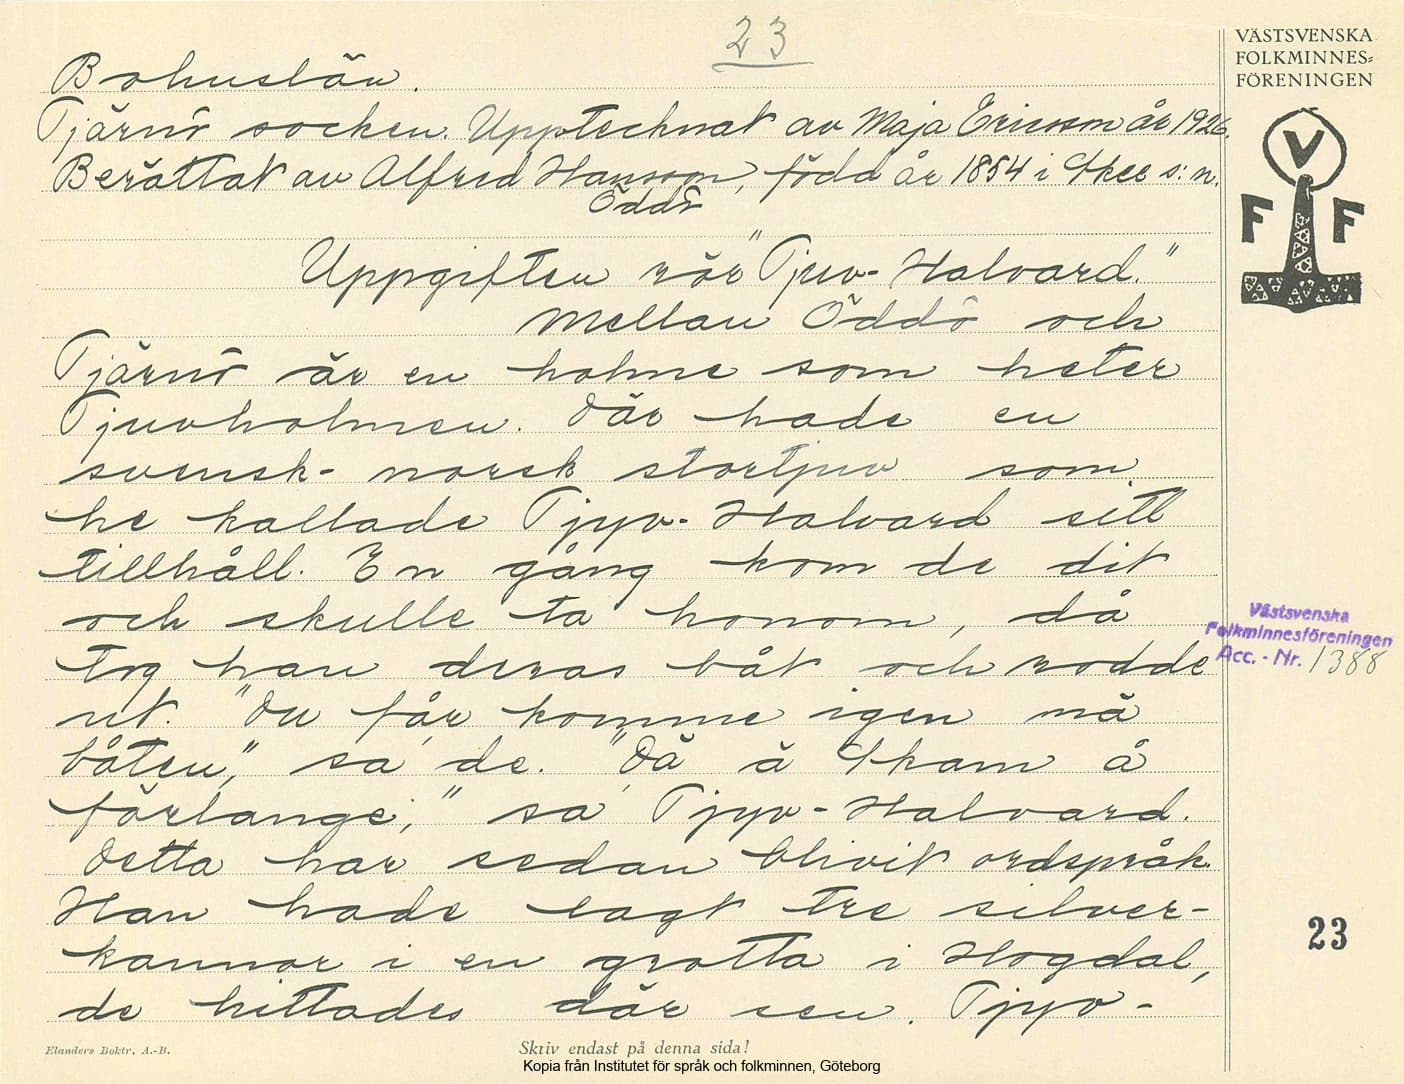 23
VÄSTSVENSKA
FOLKMINNES=
FÖRENINGEN
V
F F
Bohuslän.
Tjärnö socken. Upptecknat av Maja Ericson år 1926.
Berättat av Alfred Hansson, född år 1854 i Skee s:n.
Öddö
Uppgiften rör "Tjuv-Halvard."
Mellan Öddö och
Tjärnö är en holme som heter
Tjuvholmen. Där hade en
svensk-norsk stortjuv som
he kallade Tjyv-Halvard sitt
tillhåll. En gång kom de dit
och skulle ta honom, då
tog han deras båt och rodde
ut. "Du får komme igen mä
båten," sa' de. "Dä ä Skam å
förlange," sa' Tjyv-Halvard.
Detta har sedan blivit ordspråk.
Han hade lagt tre silver-
kannor i en grotta i Hogdal,
de hittades där sen. Tjyv-
Västsvenska
Folkminnesföreningen
Acc.-Nr. 1388
23
Elanders Boktr. A.-B.
Skriv endast på denna sida!
Kopia från Institutet för språk och folkminnen, Göteborg